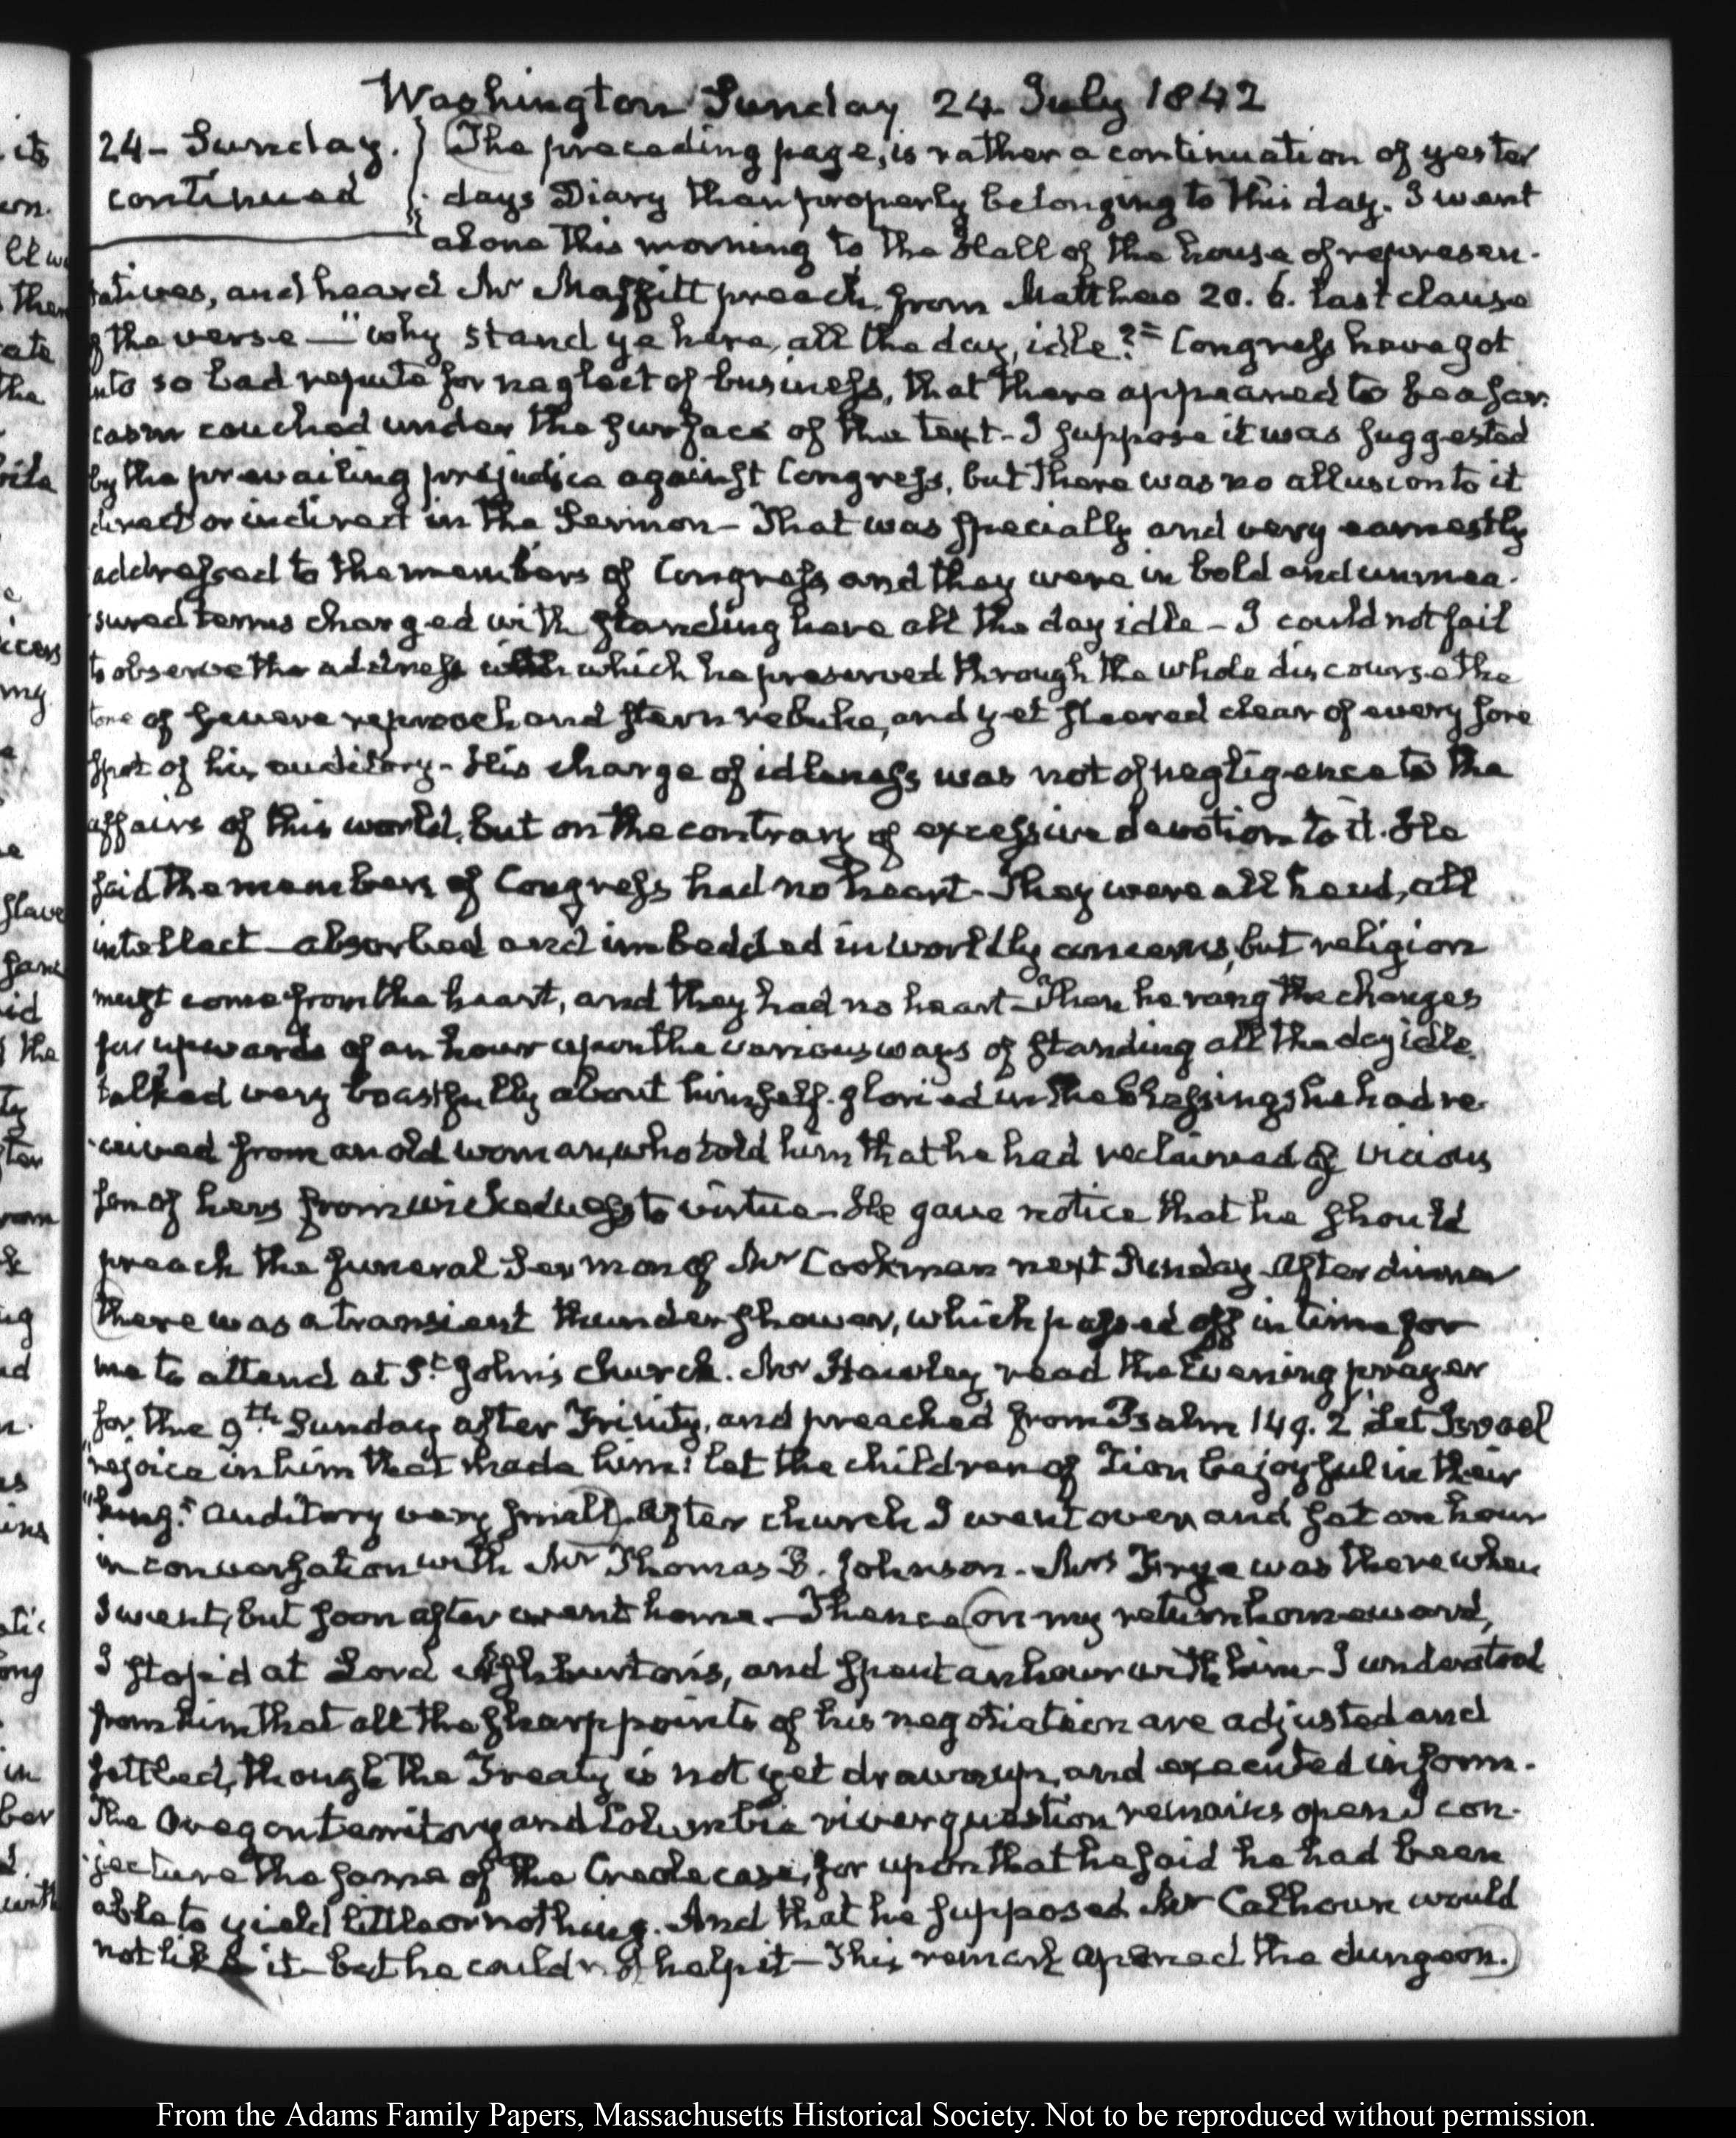 Washington Sunday 24 July 1842
24 – Sunday. The preceding page, is rather a continuation of yester
continued days Diary than properly belonging to this day. I went
alone this morning to the Hall of the house of represen-
tatives, and heard Mr Maffitt preach from Matthew 20. 6. last clause
of the verse — "why stand ye here, all the day, idle?" Congress have got
into so bad repute for neglect of business, that there appeared to be a sar-
casm couched under the surface of the text – I suppose it was suggested
by the prevailing prejudice against Congress, but there was no allusion to it
direct or indirect in the Sermon – That was specially and very earnestly
addressed to the members of Congress and they were in bold and unmea-
sured terms charged with standing here all the day idle – I could not fail
to observe the address with which he preserved through the whole discourse the
tone of severe reproach and stern rebuke, and yet steered clear of every sore
spot of his auditory – His charge of idleness was not of negligence to the
affairs of this world, but on the contrary of excessive devotion to it. He
said the members of Congress had no heart – They were all head, all
intellect – absorbed and imbedded in worldly concerns, but religion
must come from the heart, and they had no heart – Then he rang the changes
for upwards of an hour upon the various ways of standing all the day idle,
talked very boastfully about himself. gloried in the blessings he had re-
ceived from an old woman, who told him that he had reclaimed a vicious
son of hers from wickedness to virtue – He gave notice that he should
preach the funeral Sermon of Mr Cookman next Sunday – After dinner
there was a transient thunder shower, which passed off in time for
me to attend at St. John's church. Mr Hawley read the Evening prayer
for the 9th Sunday after Trinity, and preached from Psalm 149. 2 "Let Israel
"rejoice in him that made him: let the children of Zion be joyful in their
"king." Auditory very small. After church I went over and sat an hour
in conversation with Mr Thomas B. Johnson – Mrs Frye was there when
I went, but soon after went home – Thence on my return homeward,
I stop'd at Lord Ashburton's, and spent an hour with him – I understood
from him that all the sharp points of his negotiation are adjusted and
settled, though the Treaty is not yet drawn up, and executed in form.
The Oregon territory and Columbia river question remains open I con-
jecture the same of the Creole case, for upon that he said he had been
able to yield little or nothing. And that he supposed Mr Calhoun would
not like it – but he could not help it – This remark opened the dungeon.
From the Adams Family Papers, Massachusetts Historical Society. Not to be reproduced without permission.